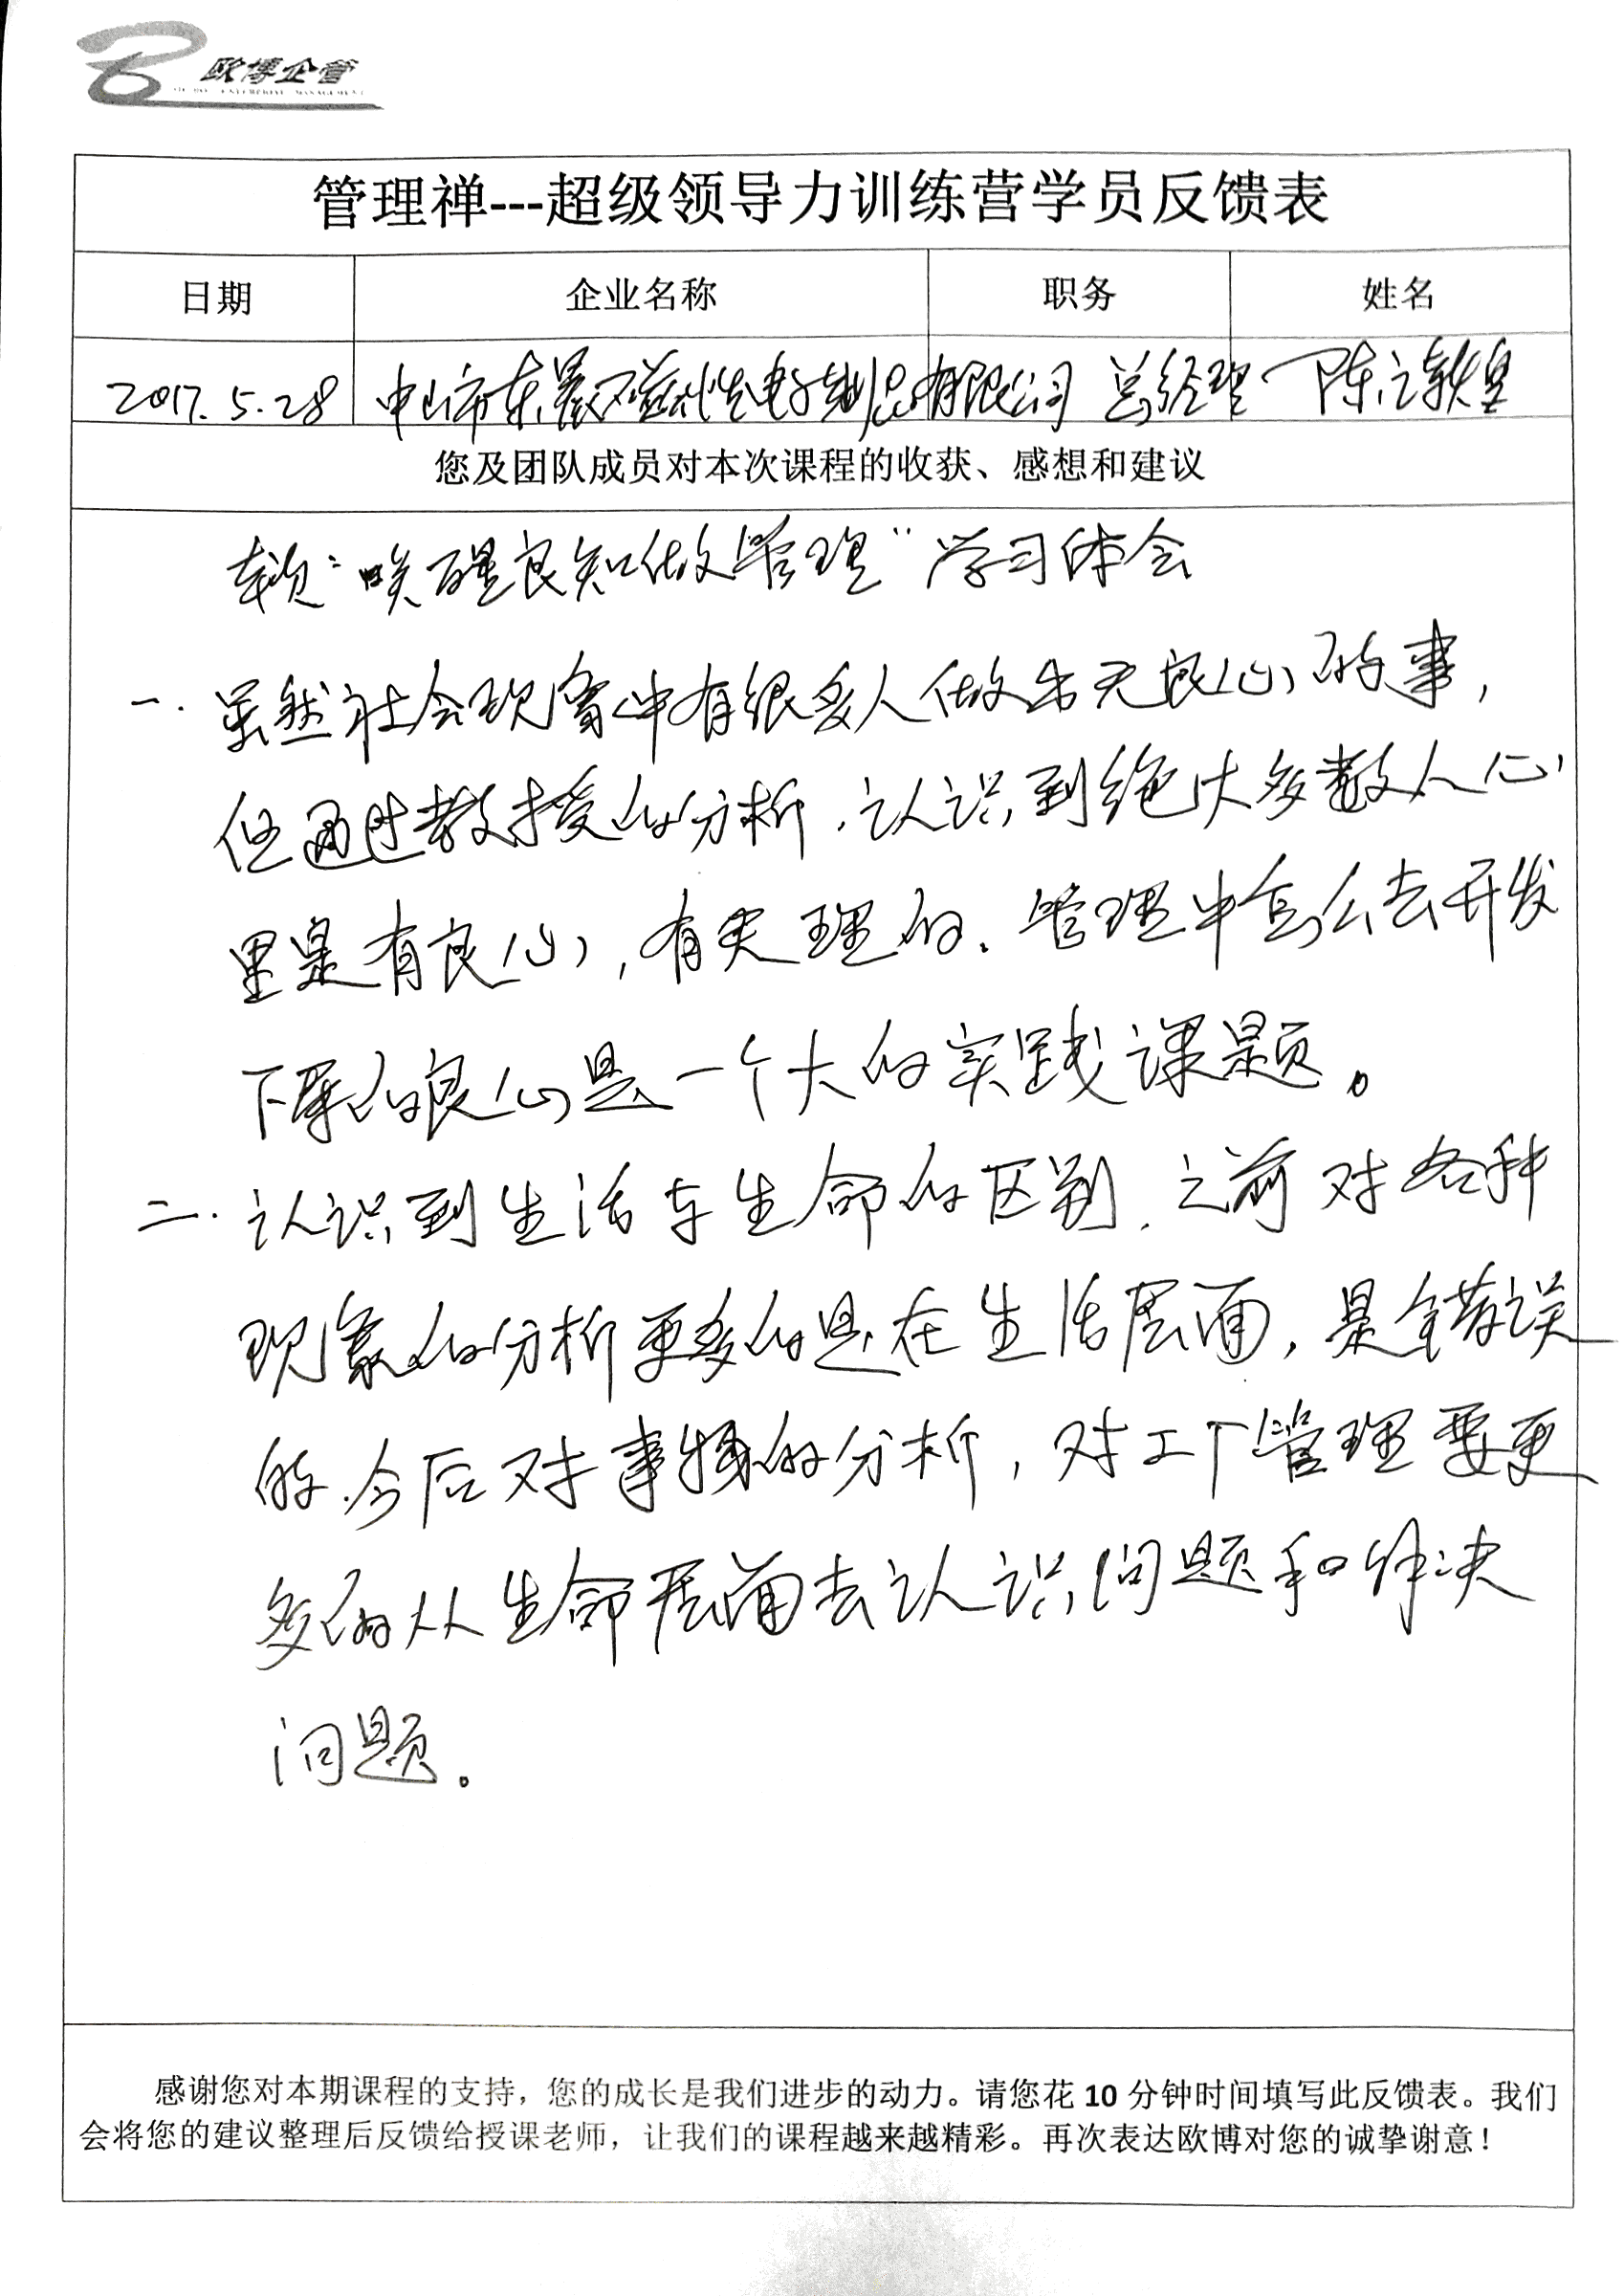 欧博企管
管理禅---超级领导力训练营学员反馈表
日期 企业名称 职务 姓名
2017.5.28 中山市东晨磁性电子制品有限公司 总经理 陈立敦皇
您及团队成员对本次课程的收获、感想和建议
"唤醒良知做管理"学习体会
一. 虽然社会现象中有很多人做出无良心的事,
但通过教授的分析,认识到绝大多数人心
里是有良心,有天理的.管理中怎么去开发
下属的良心是一个大的实践课题。
二. 认识到生活与生命的区别.之前对各种
现象的分析更多的是在生活层面,是错误
的.今后对事物的分析,对工厂管理要更
多的从生命层面去认识问题和解决
问题。
感谢您对本期课程的支持，您的成长是我们进步的动力。请您花 10 分钟时间填写此反馈表。我们
会将您的建议整理后反馈给授课老师，让我们的课程越来越精彩。再次表达欧博对您的诚挚谢意！